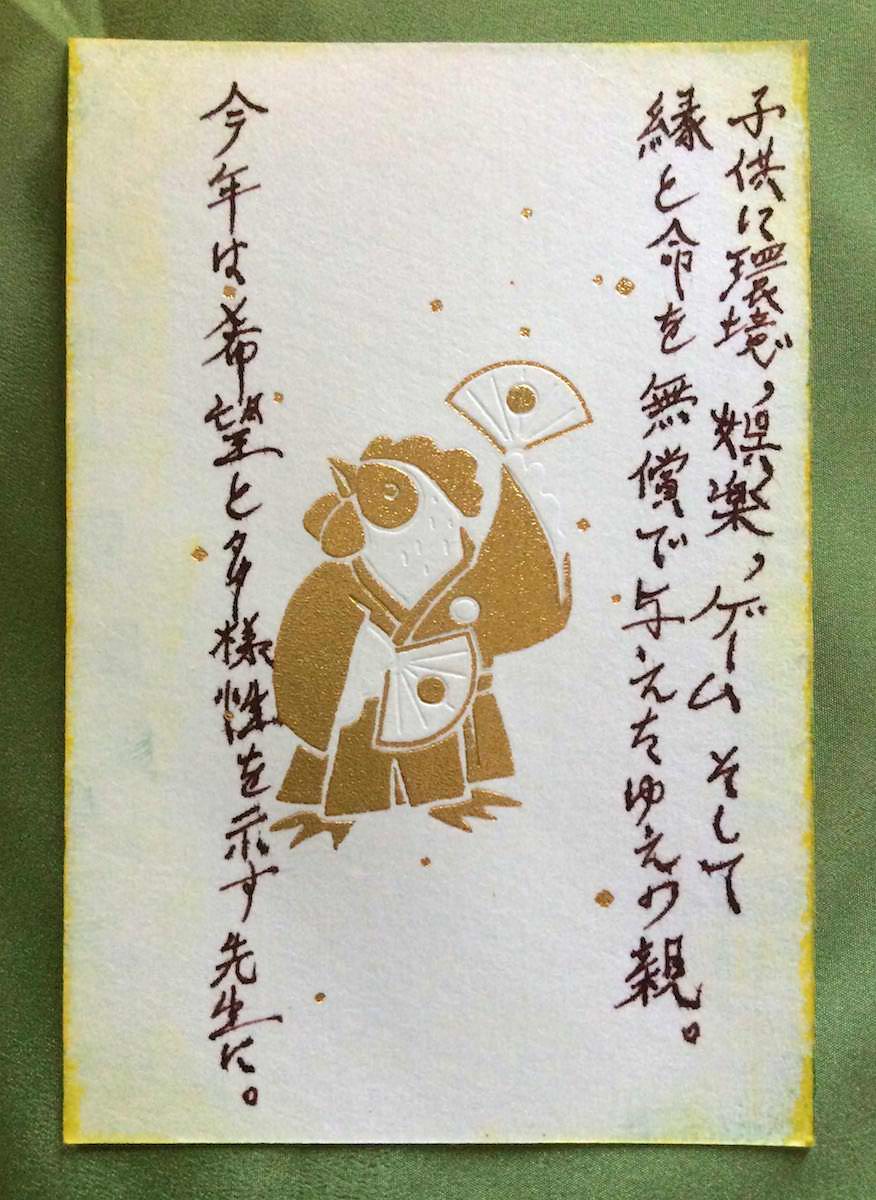 子供に環境、娯楽、ゲームそして
縁と命を無償で与えたゆえの親。
今年は希望と多様性を示す先生に。